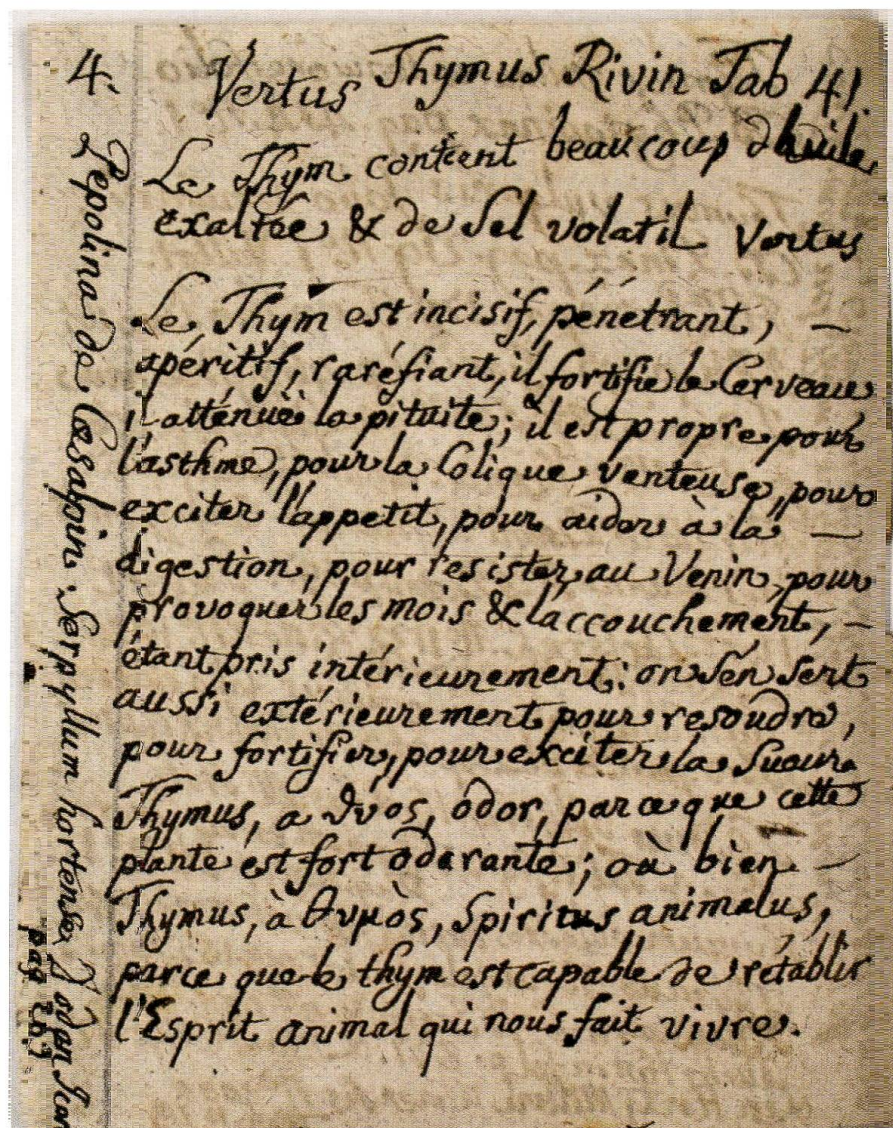 4.
Vertus Thymus Rivin Tab 41.
Le Thym contient beaucoup d'huile
exaltée & de Sel volatil Vertus
Le Thym est incisif, pénétrant, —
apéritif, raréfiant, il fortifie le Cerveau
il atténuë la pituite; il est propre pour
l'asthme, pour la Colique venteuse, pour
exciter l'appetit, pour aider à la —
digestion, pour resister au Venin, pour
provoquer les mois & laccouchement, —
étant pris intérieurement: on s'én sert
aussi extérieurement pour resoudre,
pour fortifier, pour exciter la Sueur.
Thymus, a ϑvos, odor, parce que cette
plante est fort odorante; où bien —
Thymus, à θυμὸς, Spiritus animalus,
parce que le thym est capable de rétablir
l'Esprit animal qui nous fait vivre.
Pepolina de Cœsalpin. Serpyllum hortense
pag